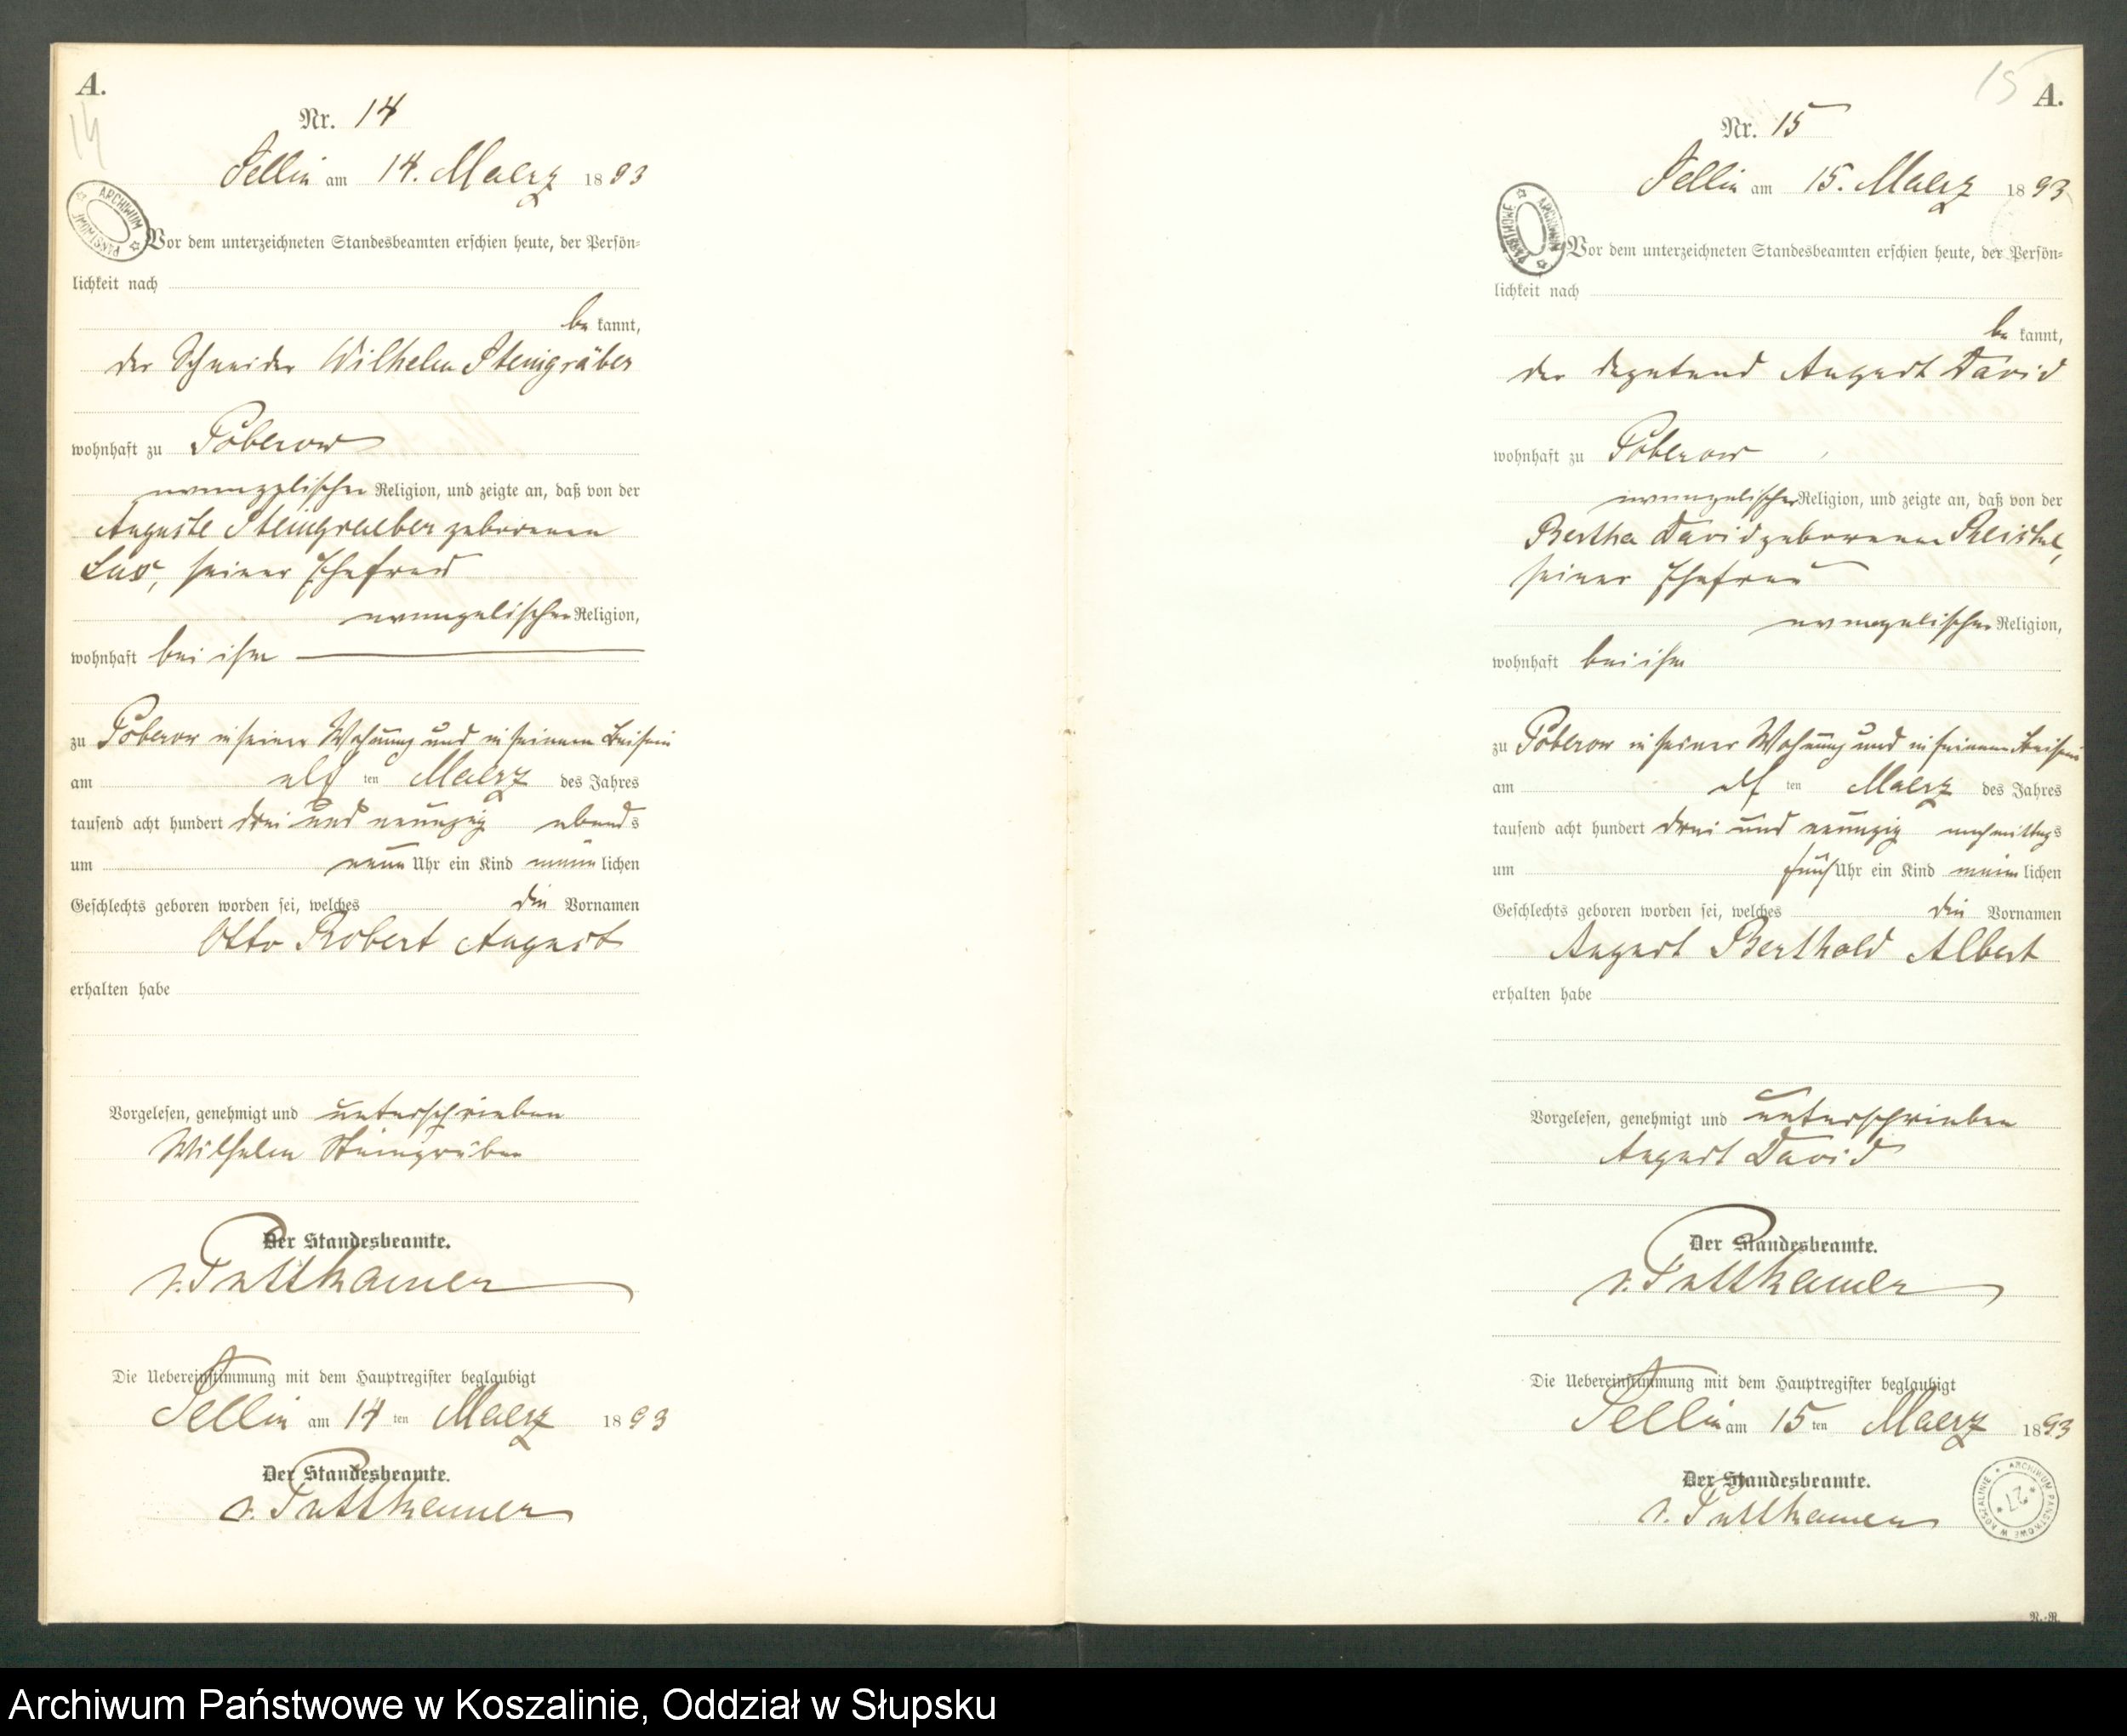 A.
14
Nr. 14
Sellin am 14. Maerz 1893
ARCHIWUM PAŃSTWOWE
Vor dem unterzeichneten Standesbeamten erschien heute, der Persön-
lichkeit nach
be kannt,
der Schneider Wilhelm Steingräber
wohnhaft zu Poberow
evangelischer Religion, und zeigte an, daß von der
Auguste Steingraeber geborenen
Lus, seiner Ehefrau
evangelischer Religion,
wohnhaft bei ihm
zu Poberow in seiner Wohnung und in seinem Beisein
am elf ten Maerz des Jahres
tausend acht hundert drei und neunzig abends
um neun Uhr ein Kind männlichen
Geschlechts geboren worden sei, welches die Vornamen
Otto Robert August
erhalten habe
Vorgelesen, genehmigt und unterschrieben
Wilhelm Steingräber
Der Standesbeamte.
v. Puttkamer
Die Uebereinstimmung mit dem Hauptregister beglaubigt
Sellin am 14 ten Maerz 1893
Der Standesbeamte.
v. Puttkamer
15
A.
Nr. 15
Sellin am 15. Maerz 1893
ARCHIWUM PAŃSTWOWE
Vor dem unterzeichneten Standesbeamten erschien heute, der Persön-
lichkeit nach
be kannt,
der August David
wohnhaft zu Poberow
evangelischer Religion, und zeigte an, daß von der
Bertha David geborenen
seiner Ehefrau
evangelischer Religion,
wohnhaft bei ihm
zu Poberow in seiner Wohnung und in seinem Beisein
am elf ten Maerz des Jahres
tausend acht hundert drei und neunzig nachmittags
um fünf Uhr ein Kind männlichen
Geschlechts geboren worden sei, welches die Vornamen
August Berthold Albert
erhalten habe
Vorgelesen, genehmigt und unterschrieben
August David
Der Standesbeamte.
v. Puttkamer
Die Uebereinstimmung mit dem Hauptregister beglaubigt
Sellin am 15 ten Maerz 1893
Der Standesbeamte.
v. Puttkamer
ARCHIWUM PAŃSTWOWE W KOSZALINIE
* 27 *
N.-R.
Archiwum Państwowe w Koszalinie, Oddział w Słupsku